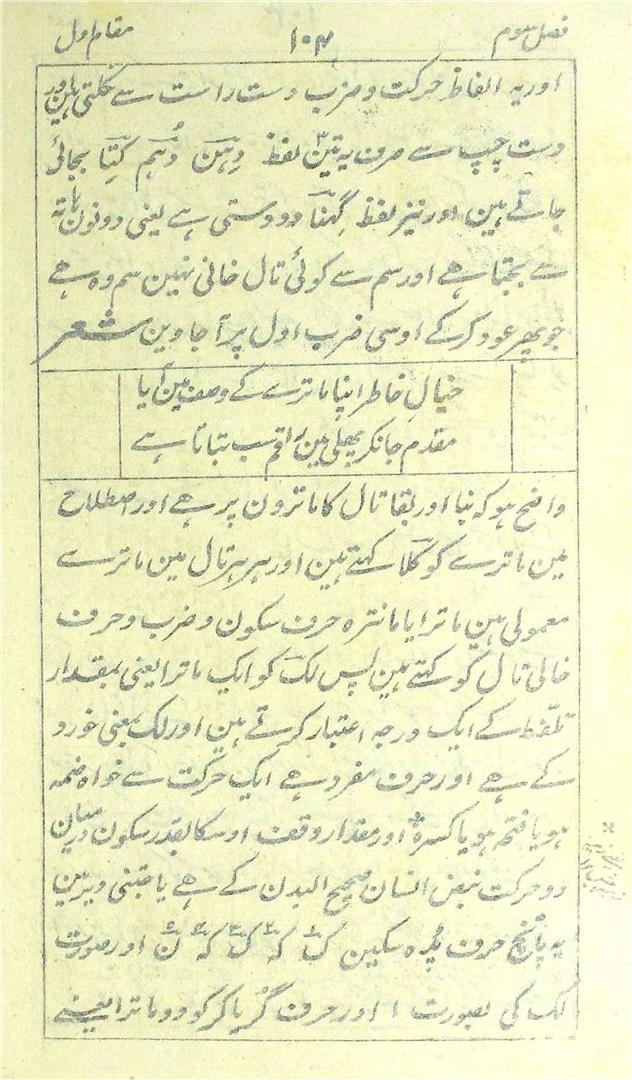 فصل سوم ۱۰۳ مقام اول
اوریہ الفاظ حرکت و ضرب دست راست سے نکلتی ہین اور
دست چپ سے صرف یہ تین لفظ دِہنَ دُہُم کِتّا بجائی
جاتے ہین اور نیز لفظ گِہنّا دو دستی ہے یعنی دونون ہاتہ
سے بجتا ہے اور سم سے کوئی تال خالی نہین سم وہ ہے
جو پھر عود کرکے اوسی ضرب اول پر آ جاوین شعر
خیالِ خاطر اپنا ماترے کے وصف مین آیا
مقدم جانکر پھلی مین راقم سب بتاتا ہے
واضح ہو کہ بنا اور بقا تال کا ماترون پر ہے اور اصطلاح
مین ماترے کو کلا کہتے ہین اور ہر ہر تال مین ماترے
معمولی ہین ماترا یا مانترہ حرف سکون و ضرب و حرف
خالی تال کو کہتے ہین پس لک کو ایک ماترا یعنی بمقدار
تلفظ کے ایک درجہ اعتبار کرتے ہین اور لک بمعنی خورد
کے ہے اور حرف مفرد ہے ایک حرکت سے خواہ ضمہ
ہو یا فتحہ ہو یا کسرہ اور مقدار وقفہ اوسکا بقدر سکون درمیان
دو حرکت نبض انسان صحیح البدن کے ہے یا جتنی دیر مین
یہ پانچ حرف پڑہ سکین ک کہ گ کہ ن اور صورت
لک کی بصورت ا اور حرف گر یا کر کو دو ماترا یعنے